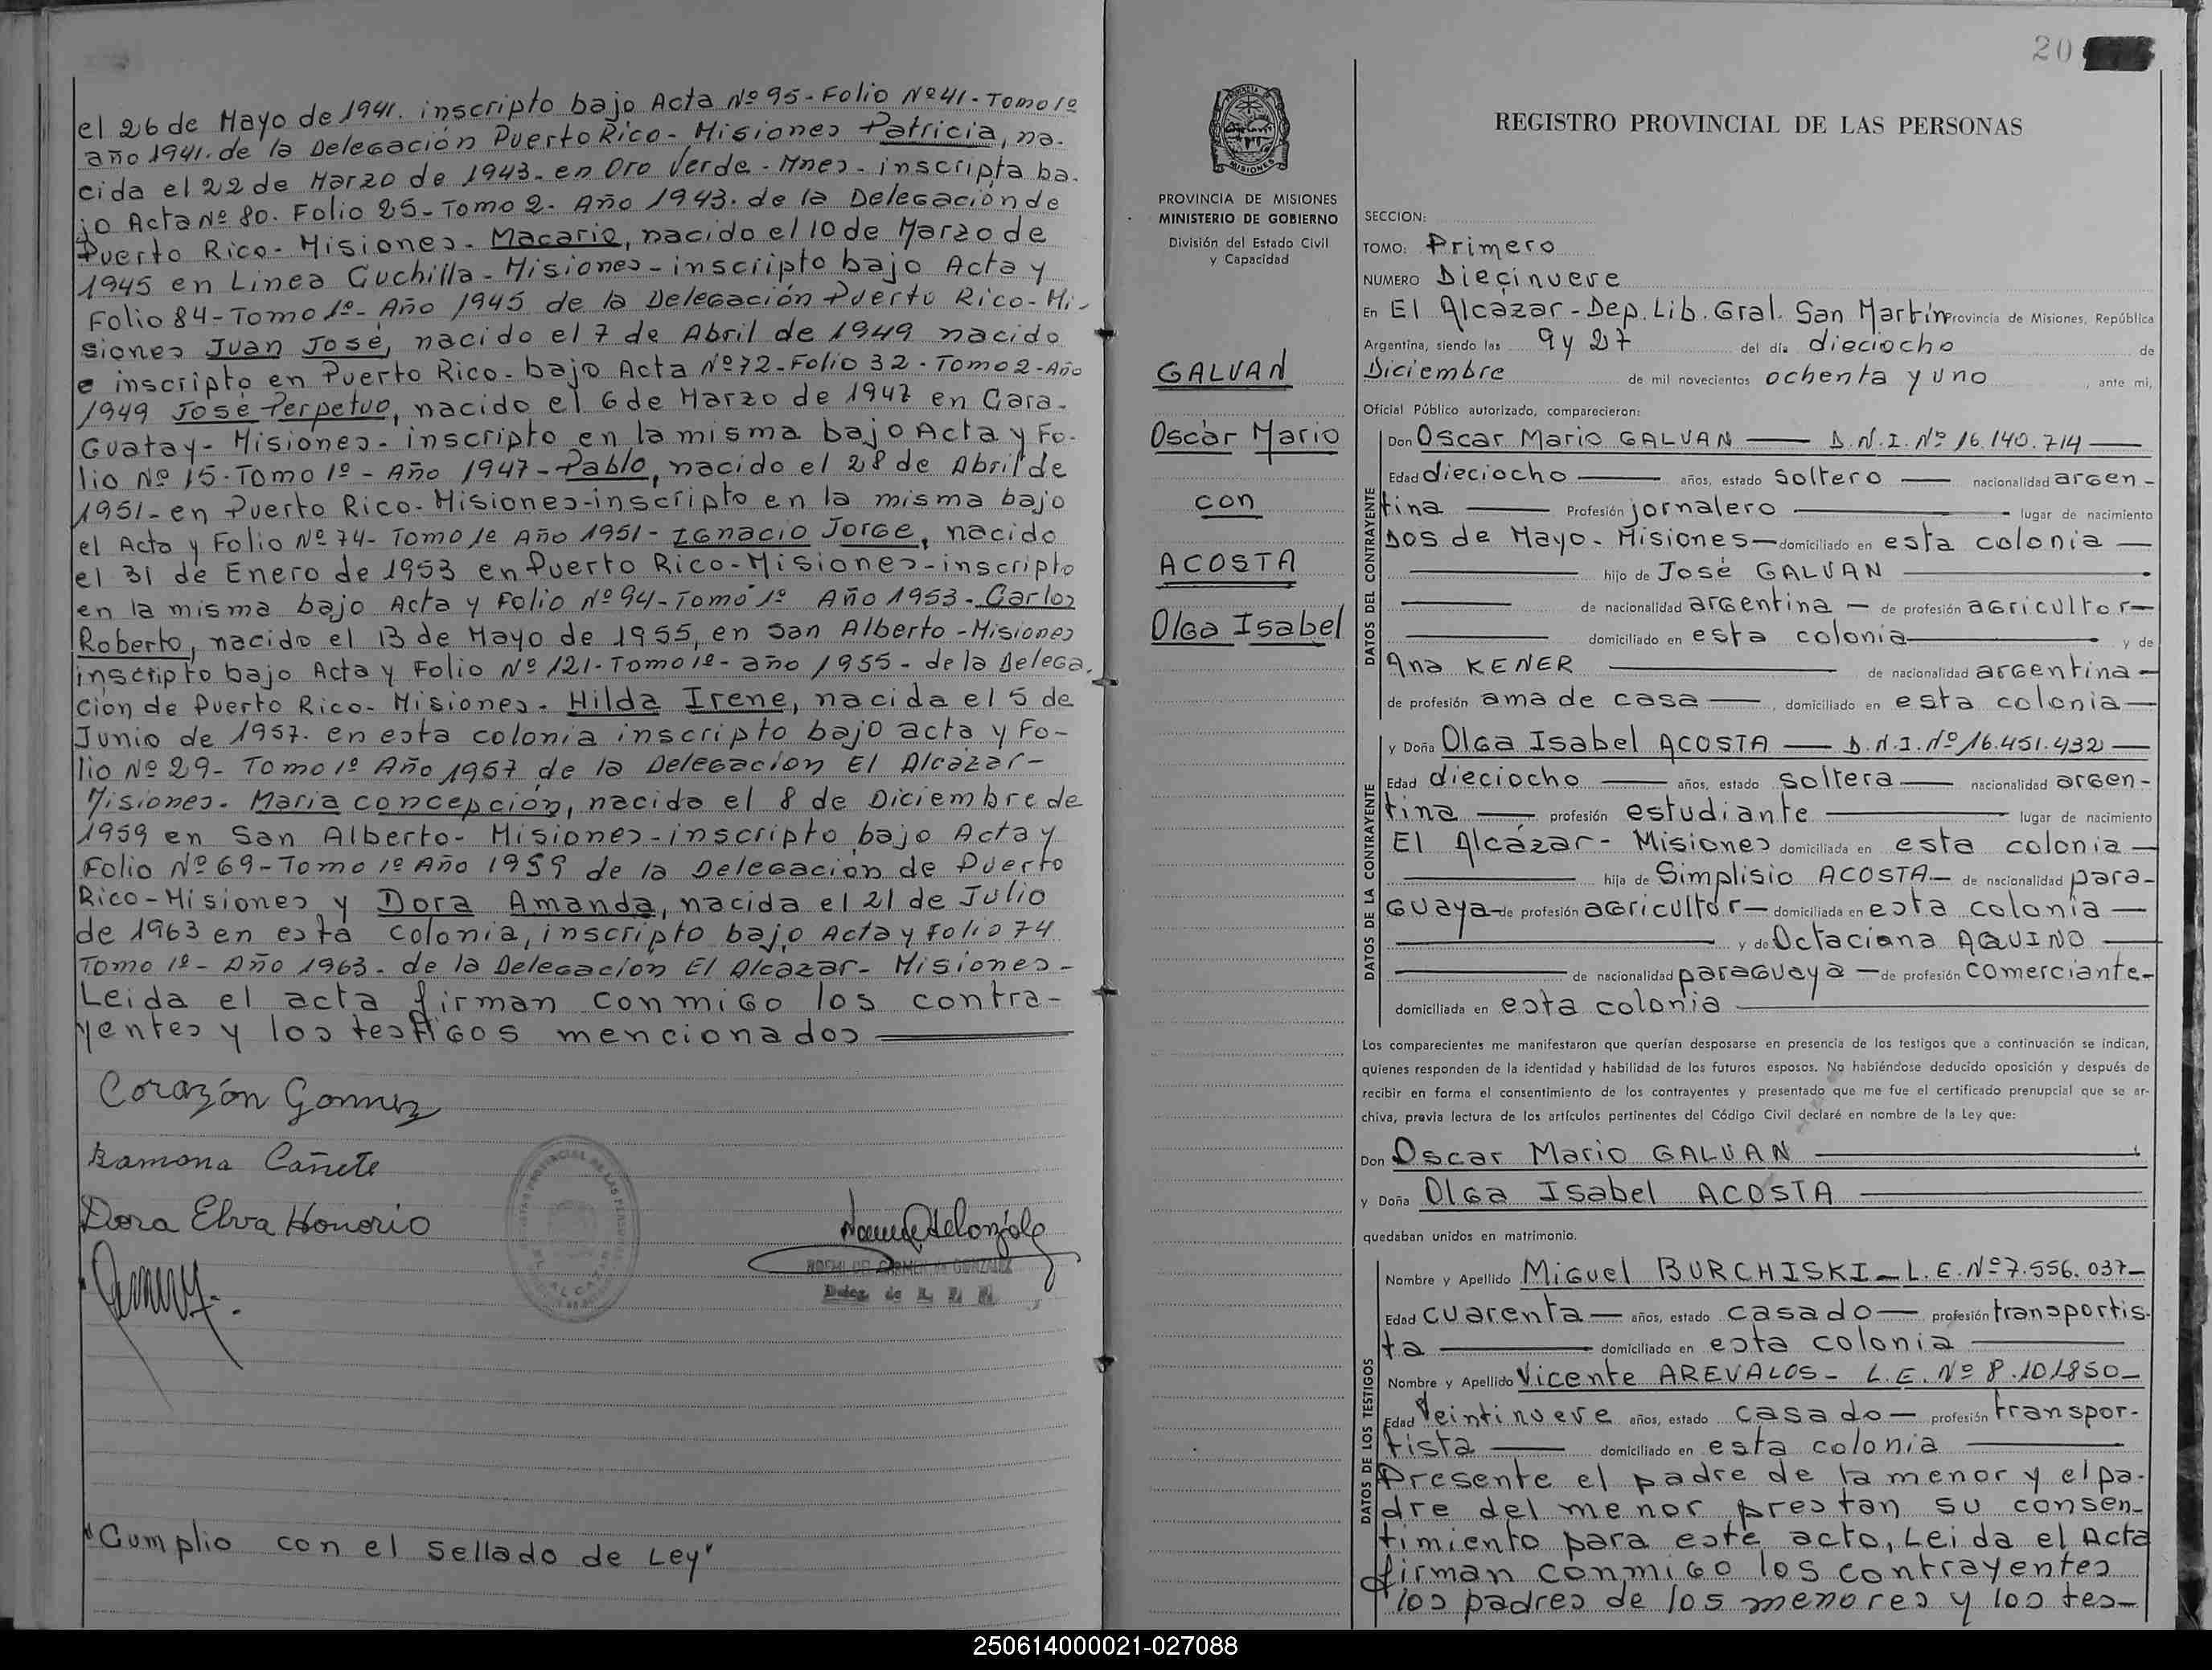 el 26 de Mayo de 1941. inscripto bajo Acta Nº 95 - Folio Nº 41 - Tomo 1º
año 1941. de la Delegación Puerto Rico - Misiones Patricia, na-
cida el 22 de Marzo de 1943 - en Oro Verde - Mnes - inscripta ba-
jo Acta Nº 80. Folio 25 - Tomo 2 - Año 1943. de la Delegación de
Puerto Rico - Misiones - Macario, nacido el 10 de Marzo de
1945 en Linea Cuchilla - Misiones - inscripto bajo Acta y
Folio 84 - Tomo 1º - Año 1945 de la Delegación Puerto Rico - Mi-
siones Juan José, nacido el 7 de Abril de 1949 nacido
e inscripto en Puerto Rico - bajo Acta Nº 72 - Folio 32 - Tomo 2 - Año
1949 José Perpetuo, nacido el 6 de Marzo de 1947 en Cara-
Guatay - Misiones - inscripto en la misma bajo Acta y Fo-
lio Nº 15 - Tomo 1º - Año 1947 - Pablo, nacido el 28 de Abril de
1951 - en Puerto Rico - Misiones - inscripto en la misma bajo
el Acta y Folio Nº 74 - Tomo 1º Año 1951 - Ignacio Jorge, nacido
el 31 de Enero de 1953 en Puerto Rico - Misiones - inscripto
en la misma bajo Acta y Folio Nº 94 - Tomo 1º Año 1953 - Carlos
Roberto, nacido el 13 de Mayo de 1955, en San Alberto - Misiones
inscripto bajo Acta y Folio Nº 121 - Tomo 1º - año 1955 - de la Delega-
ción de Puerto Rico - Misiones - Hilda Irene, nacida el 5 de
Junio de 1957. en esta colonia inscripto bajo acta y Fo-
lio Nº 29 - Tomo 1º Año 1957 de la Delegación El Alcázar -
Misiones. Maria Concepción, nacida el 8 de Diciembre de
1959 en San Alberto - Misiones - inscripto bajo Acta y
Folio Nº 69 - Tomo 1º Año 1959 de la Delegación de Puerto
Rico - Misiones y Dora Amanda, nacida el 21 de Julio
de 1963 en esta colonia, inscripto bajo Acta y folio 74
Tomo 1º - Año 1963. de la Delegación El Alcázar - Misiones -
Leida el acta firman conmigo los contra-
yentes y los testigos mencionados
Corazón Gomez
Ramona Cañete
Dora Elva Honorio
NOEMI DEL CARMEN de GONZALEZ
"Cumplio con el sellado de Ley"
20
PROVINCIA DE MISIONES
MINISTERIO DE GOBIERNO
División del Estado Civil
y Capacidad
GALVAN
Oscar Mario
con
ACOSTA
Olga Isabel
REGISTRO PROVINCIAL DE LAS PERSONAS
SECCION:
TOMO: Primero
NUMERO Diecinueve
En El Alcázar - Dep. Lib. Gral. San Martín Provincia de Misiones, República
Argentina, siendo las 9 y 27 del día dieciocho de
Diciembre de mil novecientos ochenta y uno, ante mi,
Oficial Público autorizado, comparecieron:
DATOS DEL CONTRAYENTE
Don Oscar Mario GALVAN D.N.I. Nº 16.140.714
Edad dieciocho años, estado soltero nacionalidad argen-
tina Profesión jornalero lugar de nacimiento
Dos de Mayo - Misiones domiciliado en esta colonia
hijo de José GALVAN
de nacionalidad argentina de profesión agricultor
domiciliado en esta colonia y de
Ana KENER de nacionalidad argentina
de profesión ama de casa, domiciliado en esta colonia
DATOS DE LA CONTRAYENTE
y Doña Olga Isabel ACOSTA D.N.I. Nº 16.451.432
Edad dieciocho años, estado soltera nacionalidad argen-
tina profesión estudiante lugar de nacimiento
El Alcázar - Misiones domiciliada en esta colonia
hija de Simplisio ACOSTA de nacionalidad para-
guaya de profesión agricultor domiciliada en esta colonia
y de Octaciana AQUINO
de nacionalidad paraguaya de profesión comerciante
domiciliada en esta colonia
Los comparecientes me manifestaron que querían desposarse en presencia de los testigos que a continuación se indican,
quienes responden de la identidad y habilidad de los futuros esposos. No habiéndose deducido oposición y después de
recibir en forma el consentimiento de los contrayentes y presentado que me fue el certificado prenupcial que se ar-
chiva, previa lectura de los artículos pertinentes del Código Civil declaré en nombre de la Ley que:
Don Oscar Mario GALVAN
y Doña Olga Isabel ACOSTA
quedaban unidos en matrimonio.
DATOS DE LOS TESTIGOS
Nombre y Apellido Miguel BURCHISKI - L.E. Nº 7.556.037
Edad cuarenta años, estado casado profesión transportis-
ta domiciliado en esta colonia
Nombre y Apellido Vicente AREVALOS - L.E. Nº 8.101850
Edad Veintinueve años, estado casado profesión transpor-
tista domiciliado en esta colonia
Presente el padre de la menor y el pa-
dre del menor prestan su consen-
timiento para este acto, Leida el Acta
firman conmigo los contrayentes
los padres de los menores y los tes-
250614000021-027088